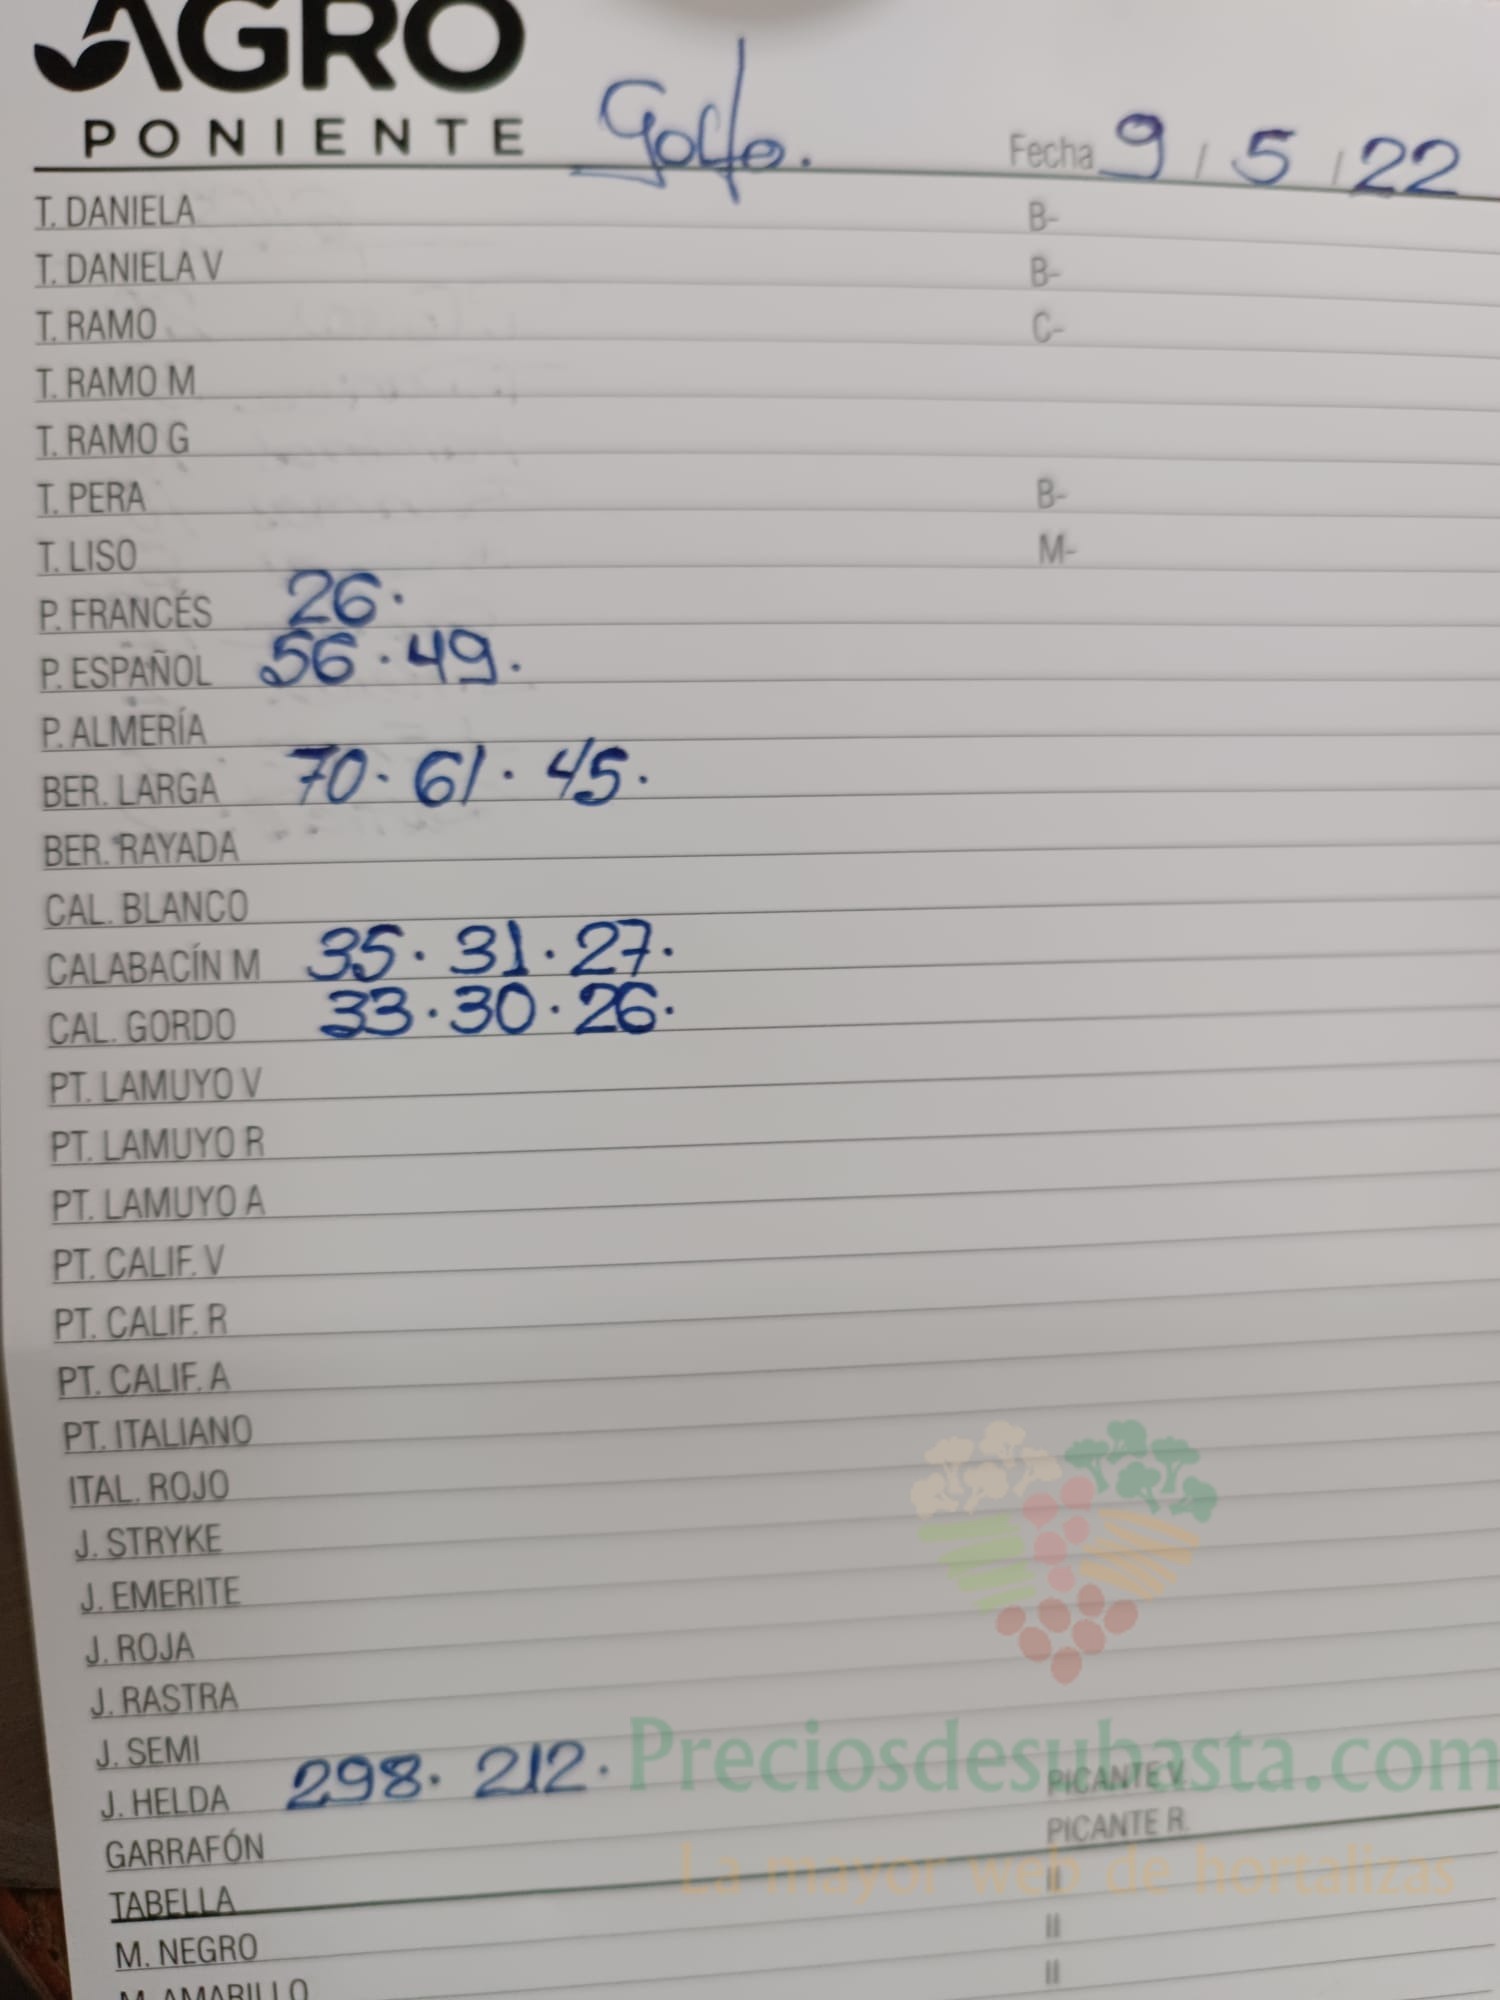 AGRO
PONIENTE
Golfo.
Fecha 9 / 5 / 22
T. DANIELA B-
T. DANIELA V B-
T. RAMO C-
T. RAMO M
T. RAMO G
T. PERA B-
T. LISO M-
P. FRANCÉS 26.
P. ESPAÑOL 56 . 49.
P. ALMERÍA
BER. LARGA 70 . 61 . 45.
BER. RAYADA
CAL. BLANCO
CALABACÍN M 35 . 31 . 27.
CAL. GORDO 33 . 30 . 26.
PT. LAMUYO V
PT. LAMUYO R
PT. LAMUYO A
PT. CALIF. V
PT. CALIF. R
PT. CALIF. A
PT. ITALIANO
ITAL. ROJO
J. STRYKE
J. EMERITE
J. ROJA
J. RASTRA
J. SEMI
J. HELDA 298 . 212.
Preciosdesubasta.com
PICANTE V.
GARRAFÓN PICANTE R.
La mayor web de hortalizas
TABELLA II
M. NEGRO II
M. AMARILLO II